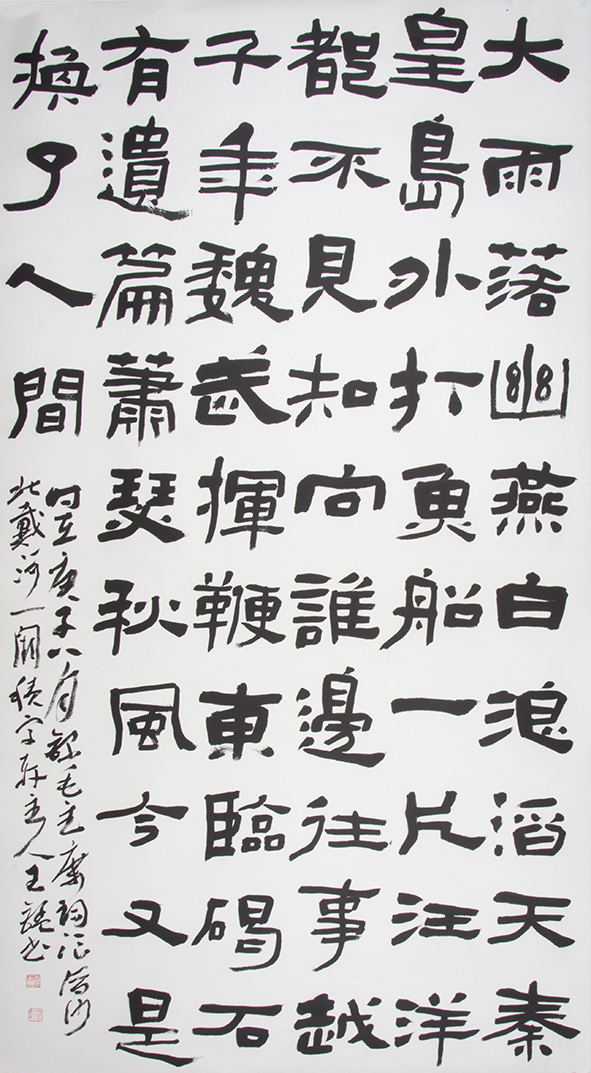 大雨落幽燕白浪滔天秦
皇島外打魚船一片汪洋
都不見知向誰邊往事越
千年魏武揮鞭東臨碣石
有遺篇蕭瑟秋風今又是
換了人間
時在庚子八月錄毛主席詞浪淘沙
北戴河一闋主人王書